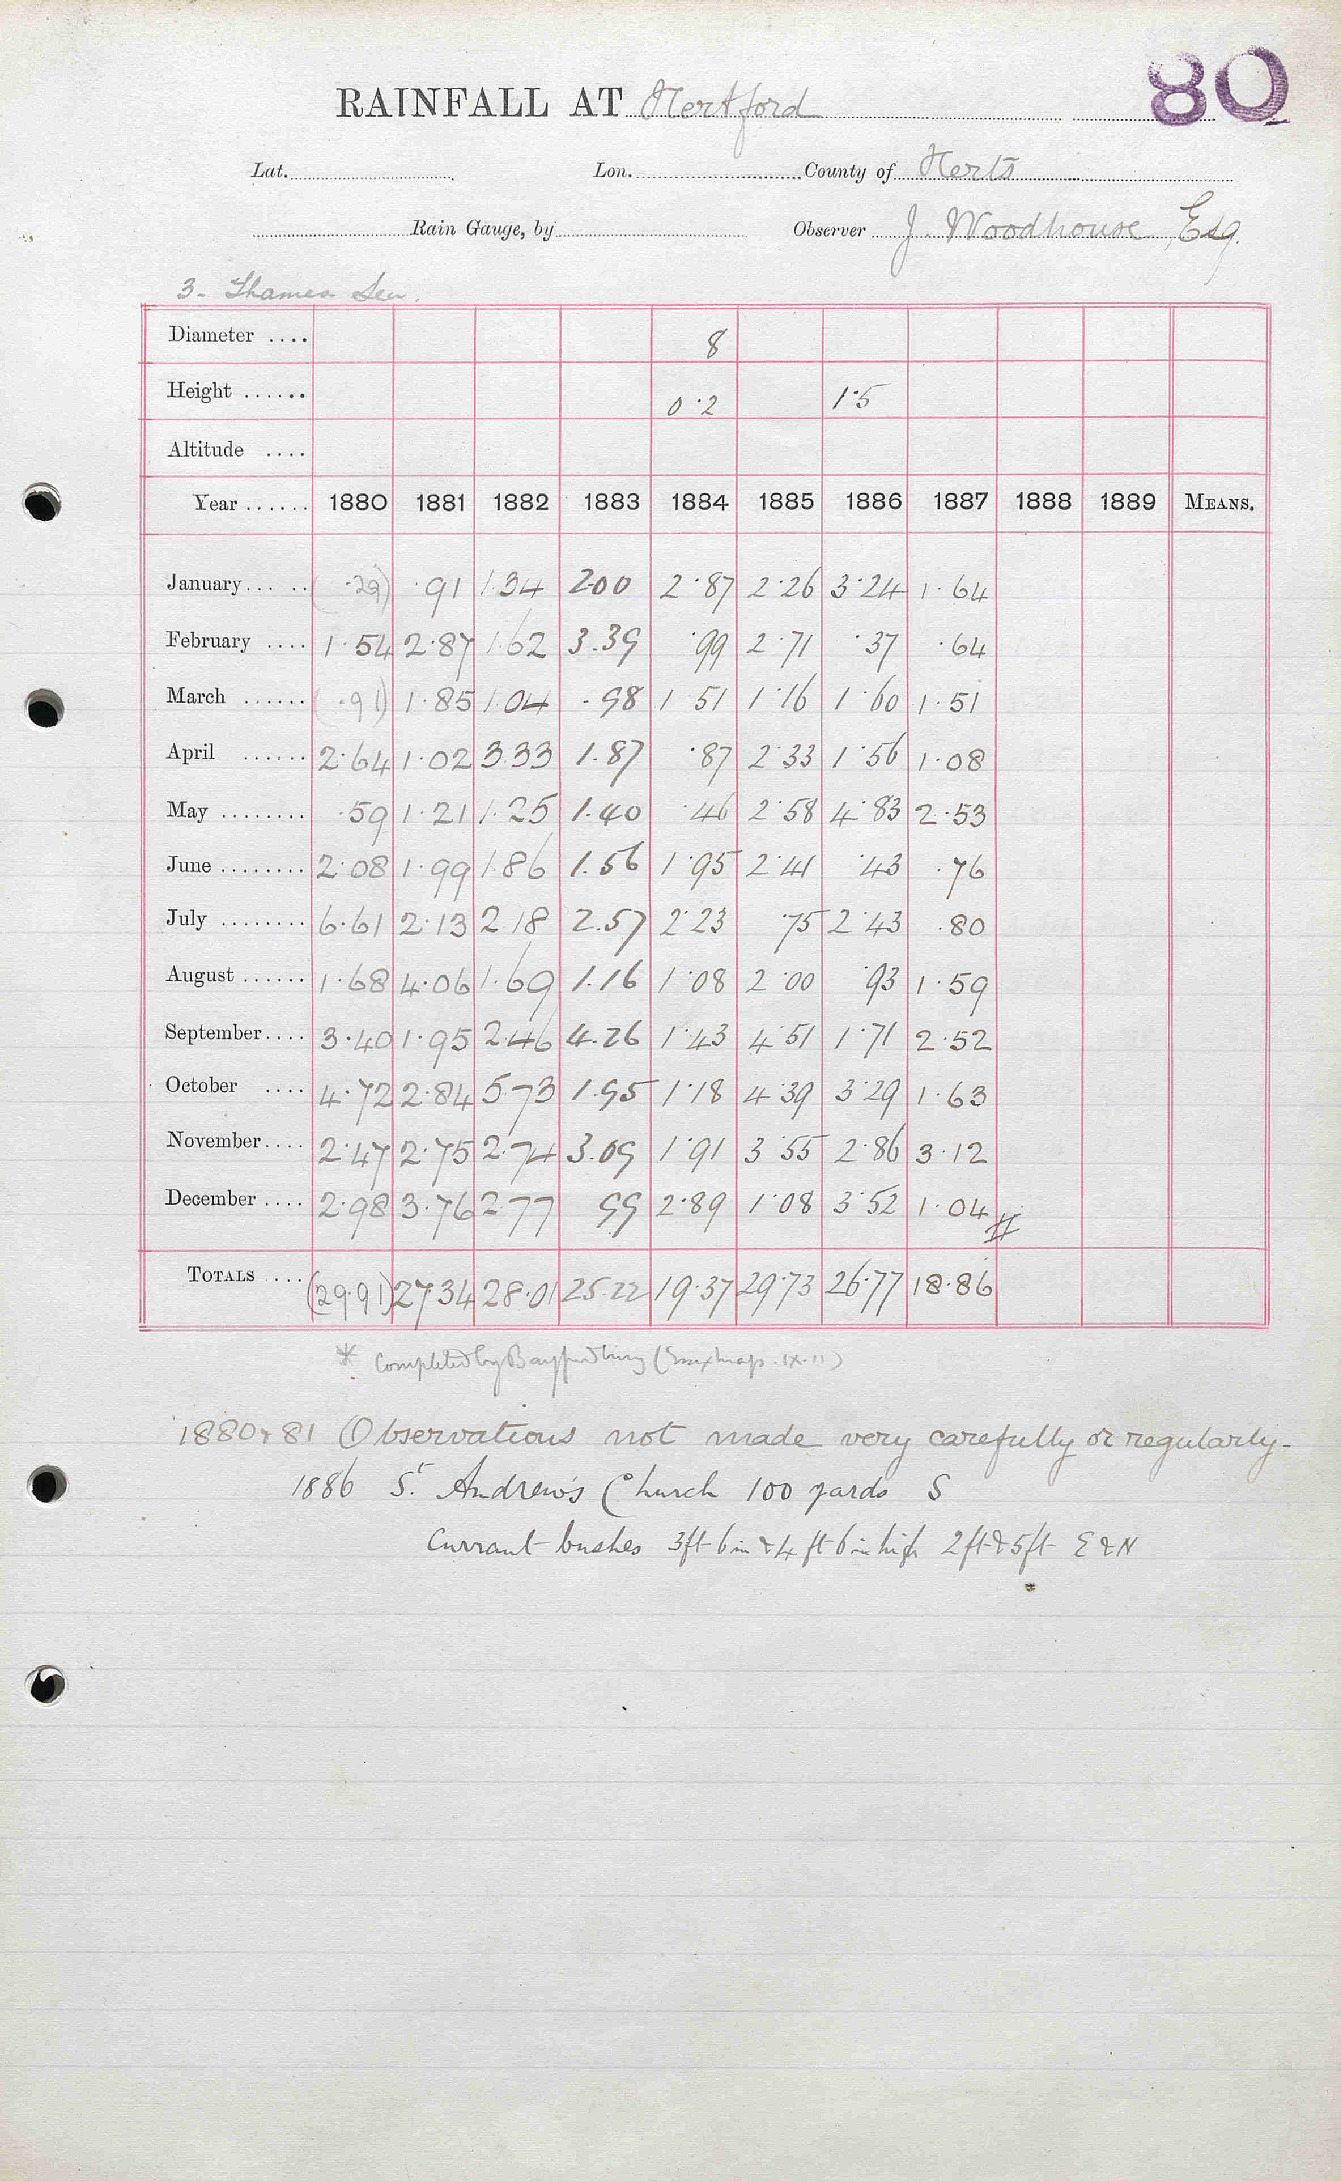 80
RAINFALL AT Hertford
Lat. Lon. County of Herts
Rain Gauge, by Observer J. Woodhouse, Esq.
3. Thames Sec.
Diameter .... 8
Height ...... 0.2 1.5
Altitude ....
Year ...... 1880 1881 1882 1883 1884 1885 1886 1887 1888 1889 MEANS.
January ... .. (.29) .91 1.34 2.00 2.87 2.26 3.24 1.64
February .... 1.54 2.87 1.62 3.39 .99 2.71 .37 .64
March ...... (.91) 1.85 1.04 .98 1 51 1.16 1.60 1.51
April ...... 2.64 1.02 3.33 1.87 .87 2.33 1.56 1.08
May ........ .59 1.21 1.25 1.40 .46 2.58 4.83 2.53
June ........ 2.08 1.99 1.86 1.56 1.95 2.41 .43 .76
July ........ 6.61 2.13 2.18 2.57 2.23 .75 2.43 .80
August ...... 1.68 4.06 1.69 1.16 1.08 2.00 .93 1.59
September .... 3.40 1.95 2.46 4.26 1.43 4.51 1.71 2.52
October .... 4.72 2.84 5.73 1.95 1.18 4.39 3.29 1.63
November .... 2.47 2.75 2.74 3.09 1.91 3.55 2.86 3.12
December .... 2.98 3.76 2.77 99 2.89 1.08 3.52 1.04
TOTALS .... (29.91) 27.34 28.01 25.22 19.37 29.73 26.77 18.86
* Completed by Bayfordbury
1880 & 81 Observations not made very carefully or regularly.
1886 St. Andrew's Church 100 yards S
Currant bushes 3ft 6in & 4 ft 6 in high 2ft & 5ft E & N